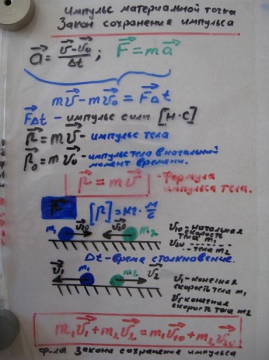 Импульс материальной точки
Закон сохранения импульса
a⃗ = (v⃗ - v⃗₀)/Δt ; F⃗ = ma⃗
mv⃗ - mv⃗₀ = F⃗Δt
F⃗Δt - импульс силы [Н·с]
p⃗ = mv⃗ - импульс тела
p⃗₀ = mv⃗₀ - импульс тела в начальный
момент времени.
p⃗ = mv⃗ - Формула
импульса тела.
[p⃗] = кг· м/с
m₁ v⃗₁₀ v⃗₂₀ m₂
v₁₀ - начальная
скорость
тела m₁
Δt - время столкновение.
v⃗₁ m₁ m₂ v⃗₂
v₁ - конечная
скорость тела m₁
v₂ конечная
скорость тела m₂
m₁v⃗₁ + m₂v⃗₂ = m₁v⃗₁₀ + m₂v⃗₂₀
ф-ла Закона сохранения импульса